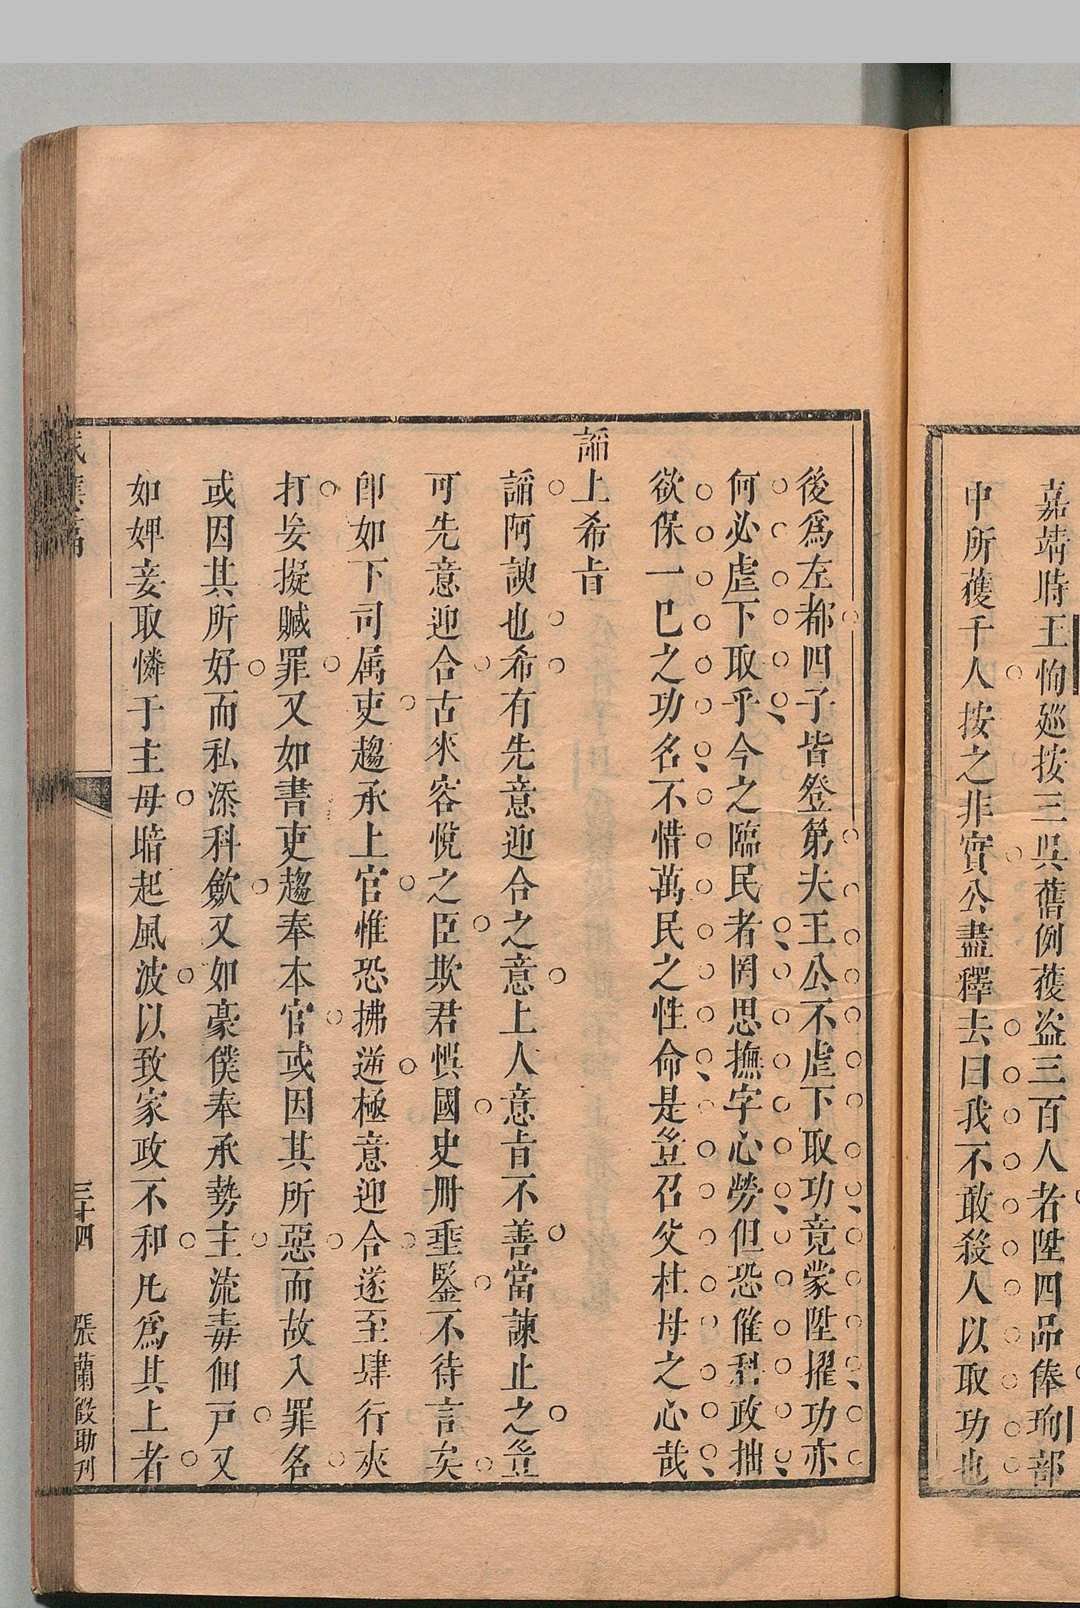 嘉靖時王恂廵按三吳舊例獲盗三百人者陞四品俸珣部
中所獲千人按之非實公盡釋去曰我不敢殺人以取功也
後爲左都四子皆登第夫王公不虐下取功竟蒙陞擢功亦
何必虐下取乎今之臨民者罔思撫字心勞但恐催科政拙
欲保一巳之功名不惜萬民之性命是豈召父杜母之心哉
謟上希㫖
謟阿諛也希有先意迎合之意上人意㫖不善當諫止之豈
可先意迎合古來容悅之臣欺君悞國史冊垂鑒不待言矣
卽如下司属吏趨承上官惟恐拂逆極意迎合遂至肆行夾
打妄擬贓罪又如書吏趨奉本官或因其所惡而故入罪名
或因其所好而私添科斂又如豪僕奉承勢主流毒佃戸又
如婢妾取憐于主母暗起風波以致家政不和凡爲其上者
三十四
張蘭毅助刋